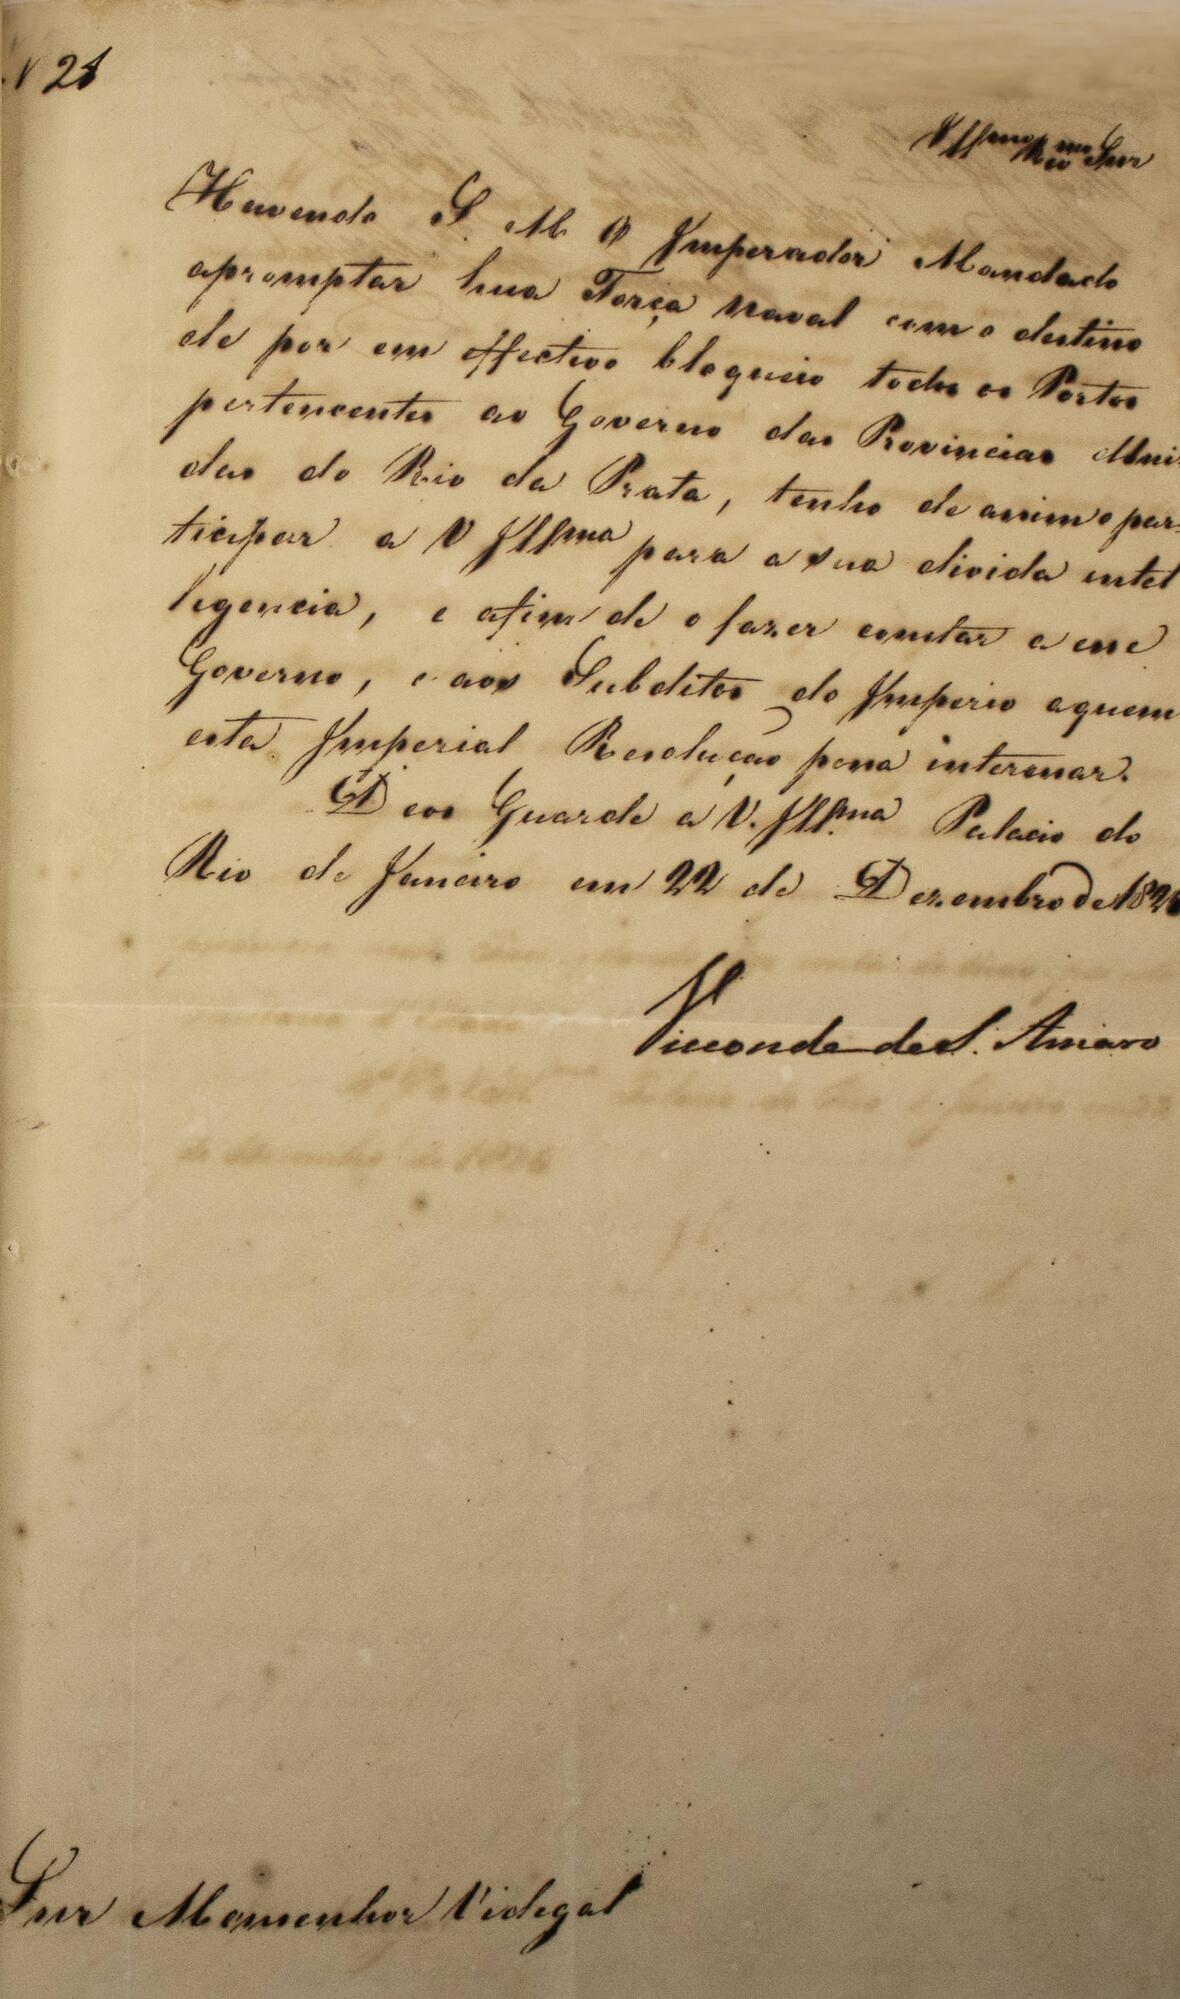 N 21
Illmo Rmo Snr
Havendo S. M. O Imperador Mandado
apromptar hua Força Naval com o destino
de por em effectivo bloqueio todos os Portos
pertencentes ao Governo das Provincias Uni-
das do Rio da Prata, tenho de assim o par-
ticipar a V Illma para a sua divida intel
ligencia, e afim de o fazer constar a esse
Governo, e aos Subditos do Imperio aquem
esta Imperial Resolução possa interessar.
Deos Guarde a V. Illma Palacio do
Rio de Janeiro em 22 de Dezembro de 182
Visconde de S. Amaro
Snr Monsenhor Vidigal